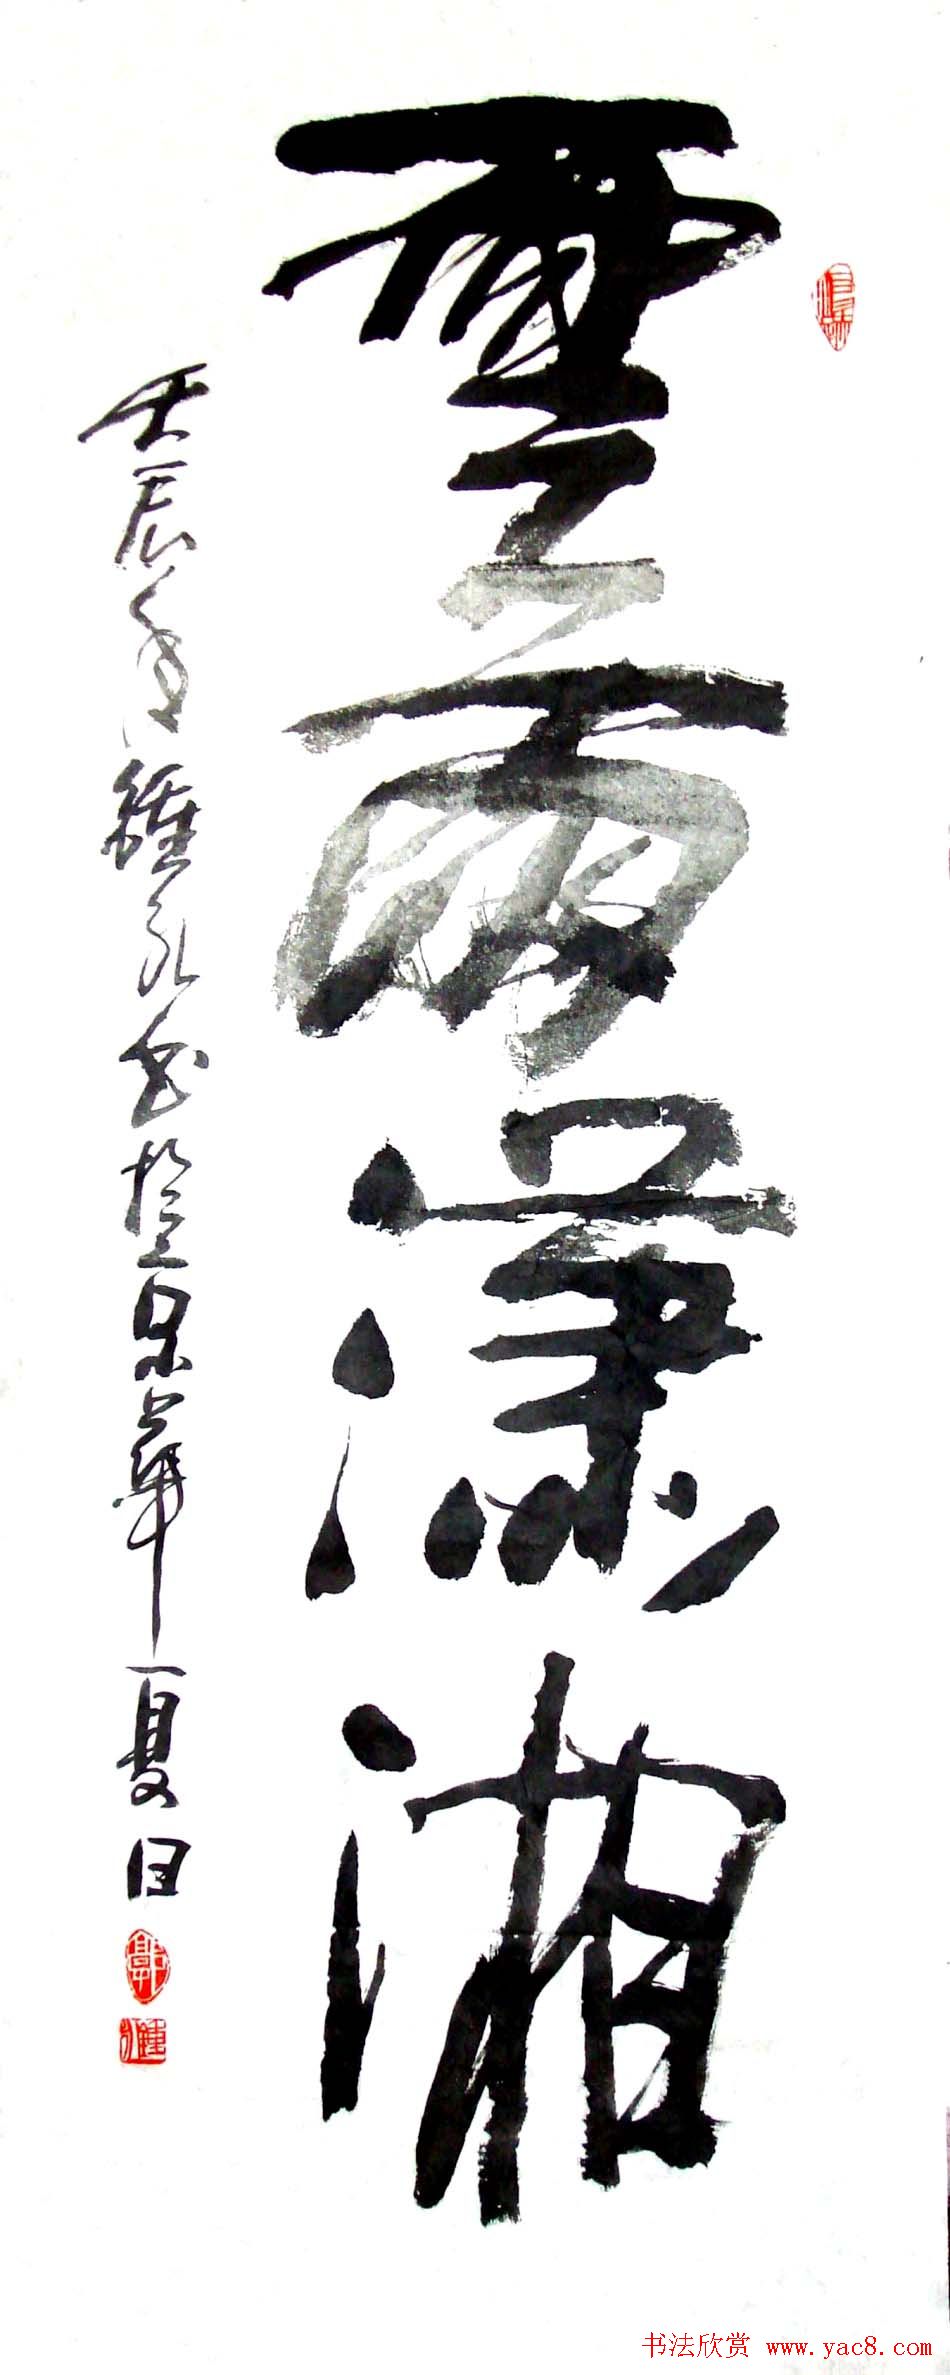 雲雨瀟湘
壬辰年鍾永書於京華夏日
书法欣赏 www.yac8.com